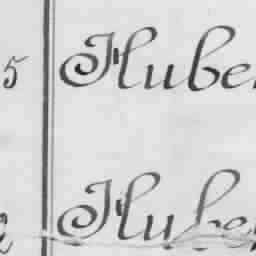 5 Huber
Huber